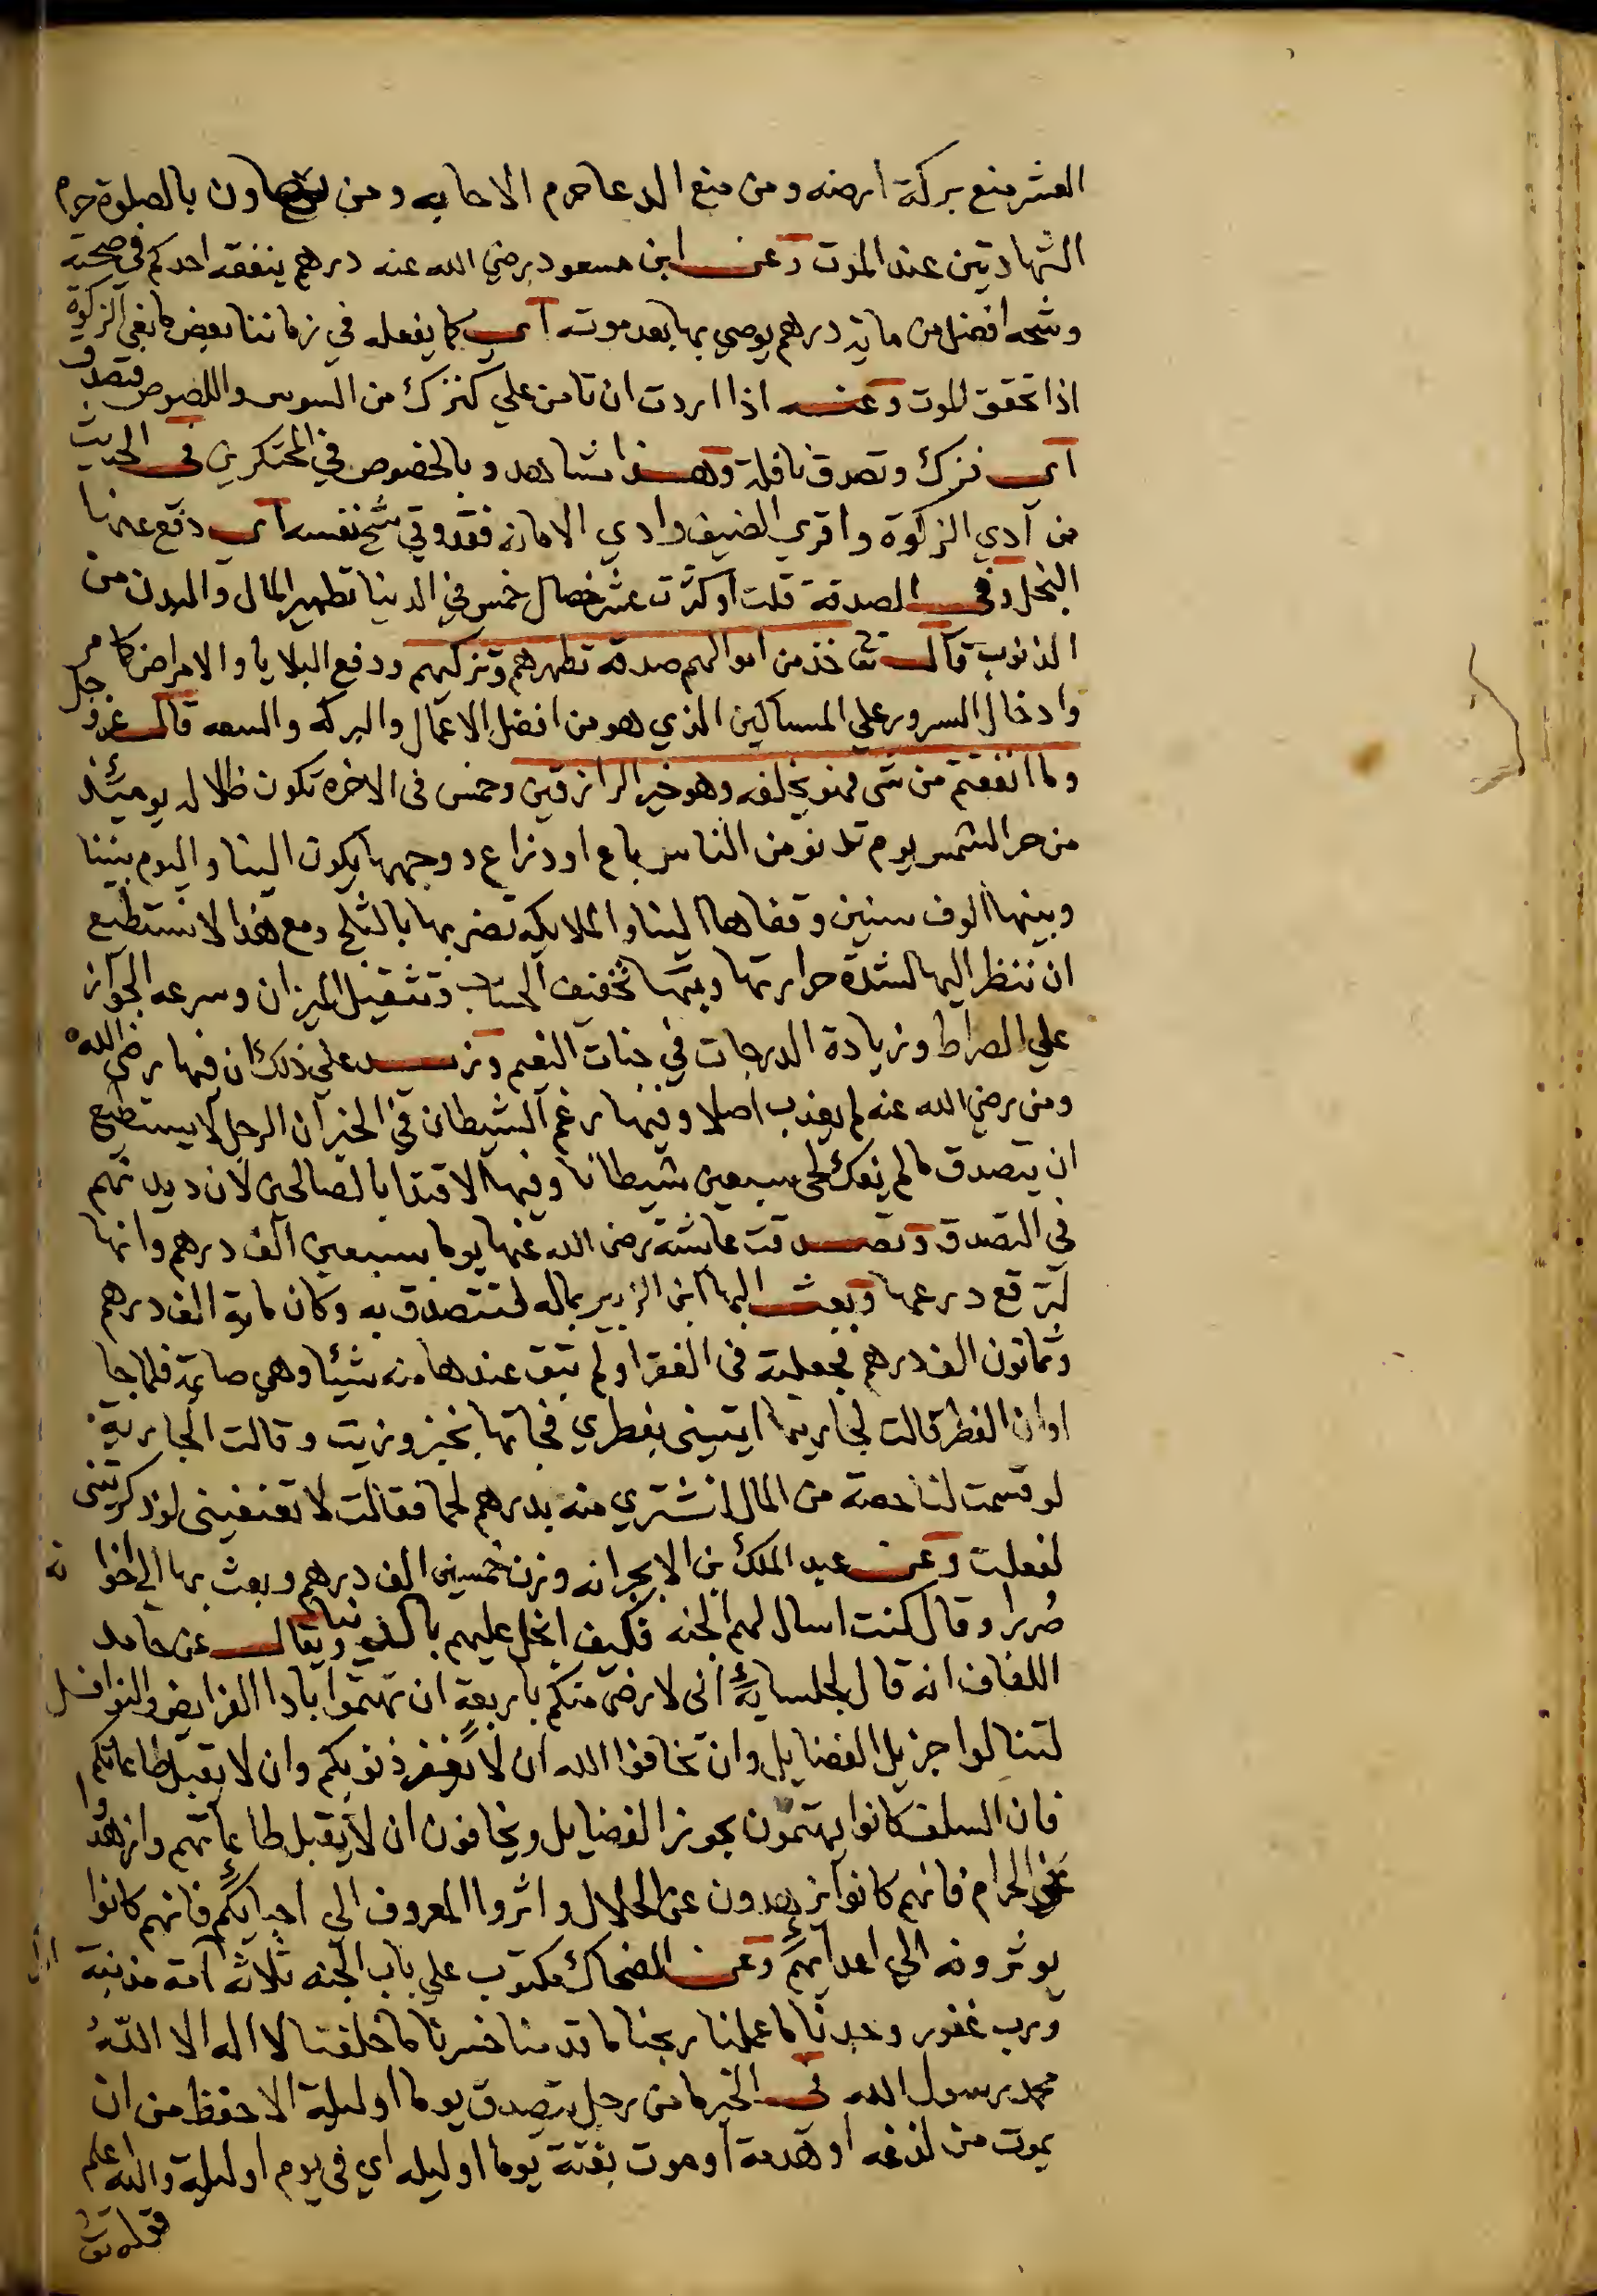 العشر منع بركة ارضه ومن منع الدعا حرم الاجابه ومن تهاون بالصلوة حرم
الشهادتين عند الموت وعن ابن مسعود رضي الله عنه درهم ينفقه احدكم في صحته
وشحه افضل من ماية درهم يوصي بها بعد موته اي كما يفعله في زماننا بعض مانعي الزكوة
اذا تحقق الموت وعنه اذا اردت ان تامن علي كنزك من السوس واللصوص فتصدق
اي نزك وتصدق نافلة وهذا مشاهد وبالخصوص في المحتكرين في الحديث
من ادي الزكوة واقري الضيف وادي الامانه فقد وقي شح نفسه اي دفع عنها
البخل وفي الصدقة قلت او كثرت عشر خصال خمس في الدنيا تطهير المال والبدن من
الذنوب قال تع خذ من اموالهم صدقه تطهرهم وتزكيهم ودفع البلايا والامراض كما مر
وادخال السرور علي المساكين الذي هو من افضل الاعمال والبركه والسعه قال عز وجل
وما انفقتم من شي فهو يخلفه وهو خير الرازقين وخمس في الاخره تكون ظلا له يومئذ
من حر الشمس يوم تدنو من الناس باع او ذراع ووجهها يكون الينا واليوم بيننا
وبينها الوف سنين وقفاها الينا والملايكه تضربها بالثلج ومع هذا لا نستطيع
ان ننظر اليها لشدة حرارتها وبها تخفيف الحساب وتثقيل الميزان وسرعه الجواز
علي الصراط وزيادة الدرجات في جنات النعيم ونزيد علي ذلك ان فيها رضي الله
ومن رضي الله عنه لم يعذب اصلا وفيها رغم الشيطان في الخبر ان الرجل لا يستطيع
ان يتصدق ما لم يفك لحي سبعين شيطانا وفيها الاقتدا بالصالحين لان ديدنهم
في التصدق وتصدقت عايشة رضي الله عنها يوما سبعين الف درهم وانها
لترقع درعها وبعث اليها ابن الزبير بماله لتتصدق به وكان ماية الف درهم
وثمانون الف درهم فجعلته في الفقرا ولم يبق عندها منه شيئا وهي صايمة فلما جا
اوان الفطر قالت لجاريتها ايتيني بفطري فجاتها بخبز وزيت وقالت الجارية
لو قسمت لنا حصة من المال نشتري منه بدرهم لحما فقالت لا تعنفيني لو ذكرتيني
لفعلت وعن عبد الملك بن الابجر انه ورث خمسين الف درهم وبعث بها الي اخوانه
صررا وقال كنت اسال لهم الجنه فكيف ابخل عليهم بالدنيا ويقال عن حامد
اللفاف انه قال لجلسائه اني لارضي منكم باربعة ان تهتموا بادا الفرايض والنوافل
لتنالوا جزيل الفضايل وان تخافوا الله ان لا يغفر ذنوبكم وان لا يقبل طاعاتكم
فان السلف كانوا يهتمون بحوز الفضايل ويخافون ان لا يقبل طاعاتهم وازهدوا
عن الحرام فانهم كانوا يزهدون عن الحلال واثروا المعروف الي احبايكم فانهم كانوا
يوثرونه الي اعدايهم وعن الضحاك مكتوب علي باب الجنه ثلاثة امة مذنبة
ورب غفور وجدنا ما عملنا ربحنا ما قدمنا خسرنا ما خلفنا لا اله الا الله
محمد رسول الله في الخبر ما من رجل يتصدق يوما او ليلة الا حفظ من ان
يموت من لدغه او هدمة او موت بغتة يوما او ليله اي في يوم او ليلة والله اعلم